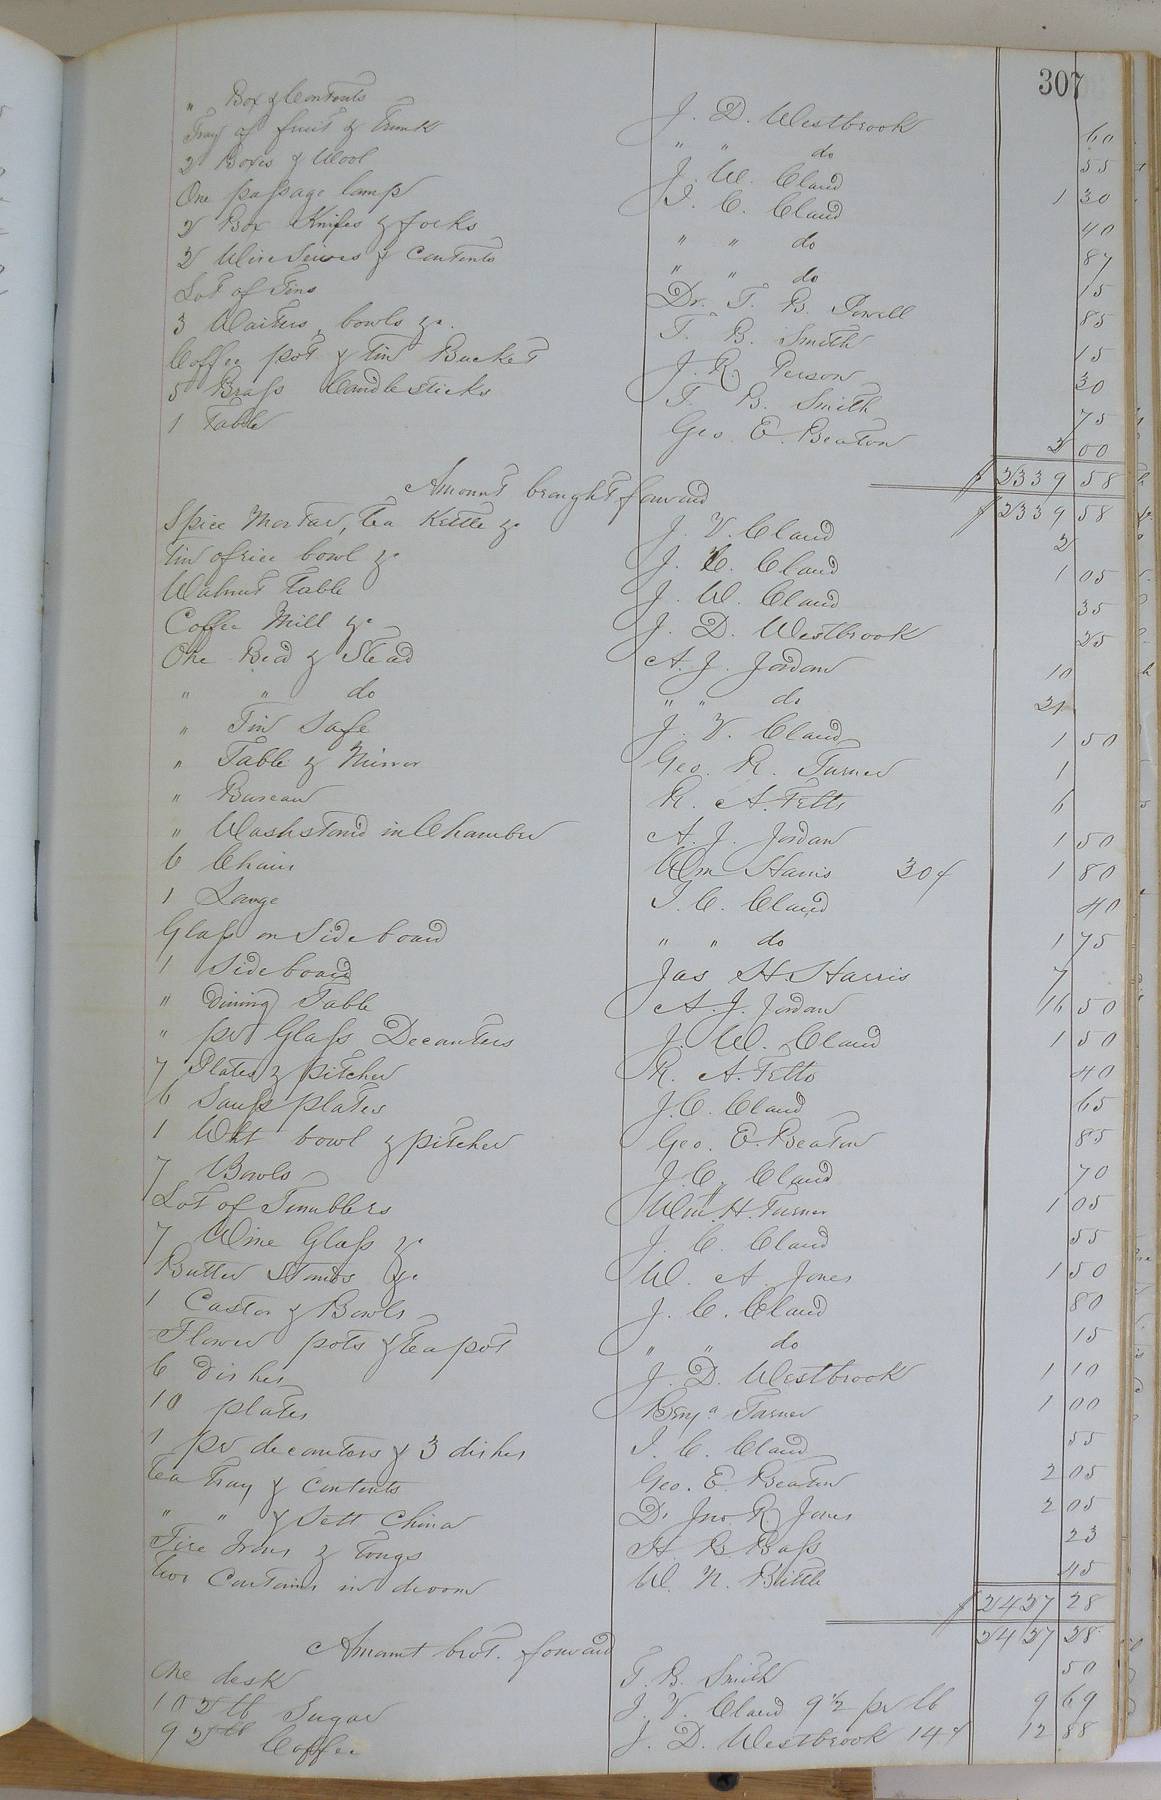 307
" Box & Contents J. D. Westbrook 60
Tray of fruit & Trunk " " do 55
2 Boxes & Wool J. W. Claud 1 30
One passage lamp J. C. Claud 40
2 Box Knifes & forks " " do 87
2 Wire Seives & Contents " " do 15
Lot of Tins Dr. T. B. Powell 85
3 Waiters, bowls &c. T. B. Smith 15
Coffee pot & tin Bucket J. R. Person 30
5 Brass Candlesticks T. B. Smith 75
1 Table Geo. E. Beaton 2 00
$ 2339 58
Amount brought forward $ 2339 58
Spice Mortar, Tea Kettle &c J. V. Claud 2
Tin of rice bowl &c J. C. Claud 1 05
Walnut Table J. W. Claud 35
Coffee Mill &c J. D. Westbrook 25
One Bed & Stead A. J. Jordan 10
" " do " " do 21
" Tin Safe J. V. Claud 1 50
" Table & Mirror Geo. R. Turner 1
" Bureau R. A. Felts 6
" Washstand in Chamber A. J. Jordan 1 50
6 Chairs Wm Harris 30¢ 1 80
1 Lounge J. C. Claud 40
Glass on Sideboard " " do 1 75
1 Sideboard Jas H. Harris 7
" Dining Table A. J. Jordan 16 50
" pr Glass Decanters J. W. Claud 1 50
7 Plates & pitcher R. A. Felts 40
6 Soup plates J. C. Claud 65
1 Wht bowl & pitcher Geo. E. Beaton 85
7 Bowls J. C. Claud 70
Lot of Tumblers Wm. H. Turner 1 05
7 Wine Glass &c J. C. Claud 55
Butter Stands &c W. A. Jones 1 50
1 Castor & Bowls J. C. Claud 80
Flower pots & tea pot " " do 15
6 dishes J. D. Westbrook 1 10
10 plates Benja Turner 1 00
1 pr decanters & 3 dishes J. C. Claud 55
Tea Tray & Contents Geo. E. Beaton 2 05
" " & Sett China Dr Jno. R. Jones 2 05
Fire Irons & Tongs H. B. Bass 23
Two Curtains in droom W. N. Brittle 45
$ 2427 28
Amount brot. forward 2427 28
One desk T. B. Smith 50
102 lb Sugar J. V. Claud 9½ pr lb 9 69
92 lb Coffee J. D. Westbrook 14¢ 12 88